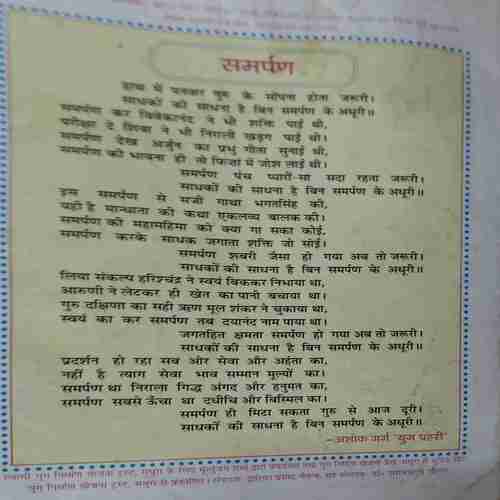 समर्पण
हाथ में पतवार गुरु के सौंपना होता जरूरी।
साधकों की साधना है बिन समर्पण के अधूरी॥
समर्पण कर विवेकानंद ने भी शक्ति पाई थी,
परीक्षा दे शिवा ने भी निराली खड्ग पाई थी।
समर्पण देख अर्जुन का प्रभु गीता सुनाई थी,
समर्पण की भावना ही तो फिजां में जोश लाई थी।
समर्पण पंच प्यारों-सा सदा रहता जरूरी।
साधकों की साधना है बिन समर्पण के अधूरी॥
इस समर्पण से सजी गाथा भगतसिंह की,
यही है मान्धाता की कथा एकलव्य बालक की।
समर्पण की महामहिमा को क्या गा सका कोई,
समर्पण करके साधक जगाता शक्ति जो सोई।
समर्पण शबरी जैसा हो गया अब तो जरूरी।
साधकों की साधना है बिन समर्पण के अधूरी॥
लिया संकल्प हरिश्चंद्र ने स्वयं बिककर निभाया था,
आरुणी ने लेटकर ही खेत का पानी बचाया था।
गुरु दक्षिणा का सही ऋण मूल शंकर ने चुकाया था,
स्वयं का कर समर्पण तब दयानंद नाम पाया था।
जगतहित क्षमता समर्पण हो गया अब तो जरूरी।
साधकों की साधना है बिन समर्पण के अधूरी॥
प्रदर्शन हो रहा सब ओर सेवा और अहंता का,
नहीं है त्याग सेवा भाव सम्मान मूल्यों का।
समर्पण था निराला गिद्ध अंगद और हनुमत का,
समर्पण सबसे ऊँचा था दधीचि और बिस्मिल का।
समर्पण ही मिटा सकता गुरु से आज दूरी।
साधकों की साधना है बिन समर्पण के अधूरी॥
-अशोक गर्ग 'युग प्रहरी'